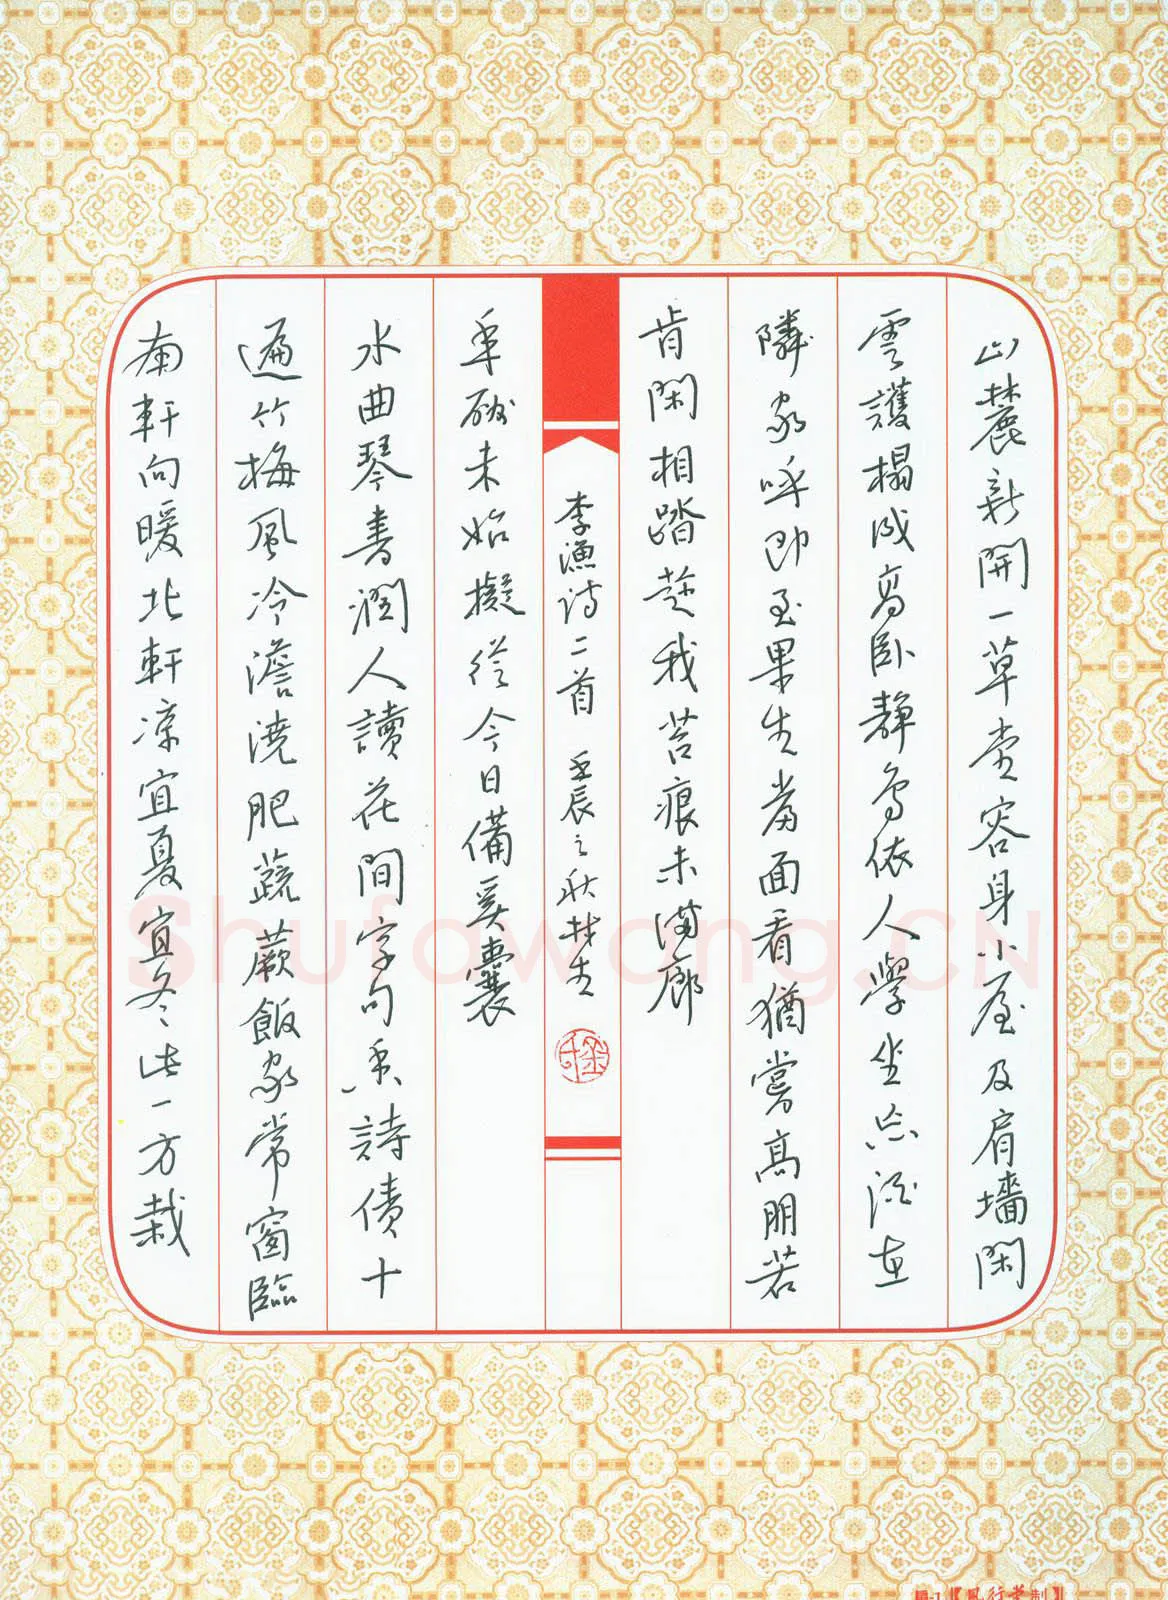 山麓新開一草堂容身小屋及肩牆閑
雲護榻成高臥靜鳥依人學坐忘酒在
隣家呼即至果生當面看猶嘗高朋若
肯閑相踏趁我苔痕未滿廊
南軒向暖北軒凉宜夏宜冬此一方栽
遍竹梅風冷澹澆肥蔬蕨飯家常窗臨
水曲琴書潤人讀花間字句香詩債十
年酬未始擬從今日備奚囊
李漁詩二首 壬辰之秋
Shufawang.CN